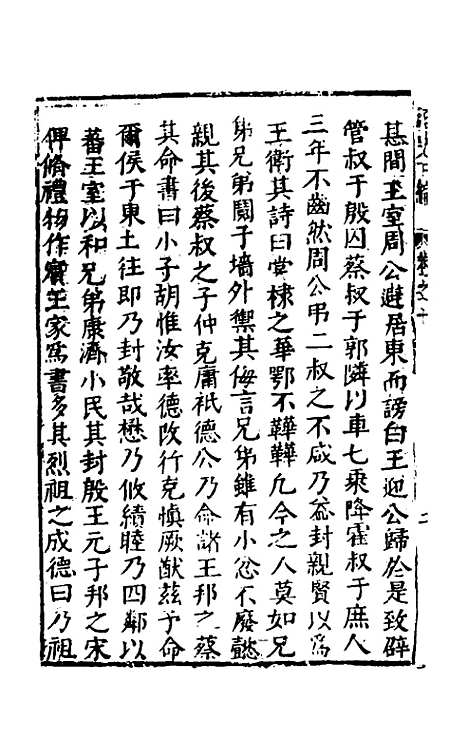 惎間王室周公避居東而謗白王迎公歸於是致辟
管叔于殷囚蔡叔于郭隣以車七乘降霍叔于庶人
三年不齒然周公弔二叔之不咸乃益封親賢以為
王衛其詩曰棠棣之華鄂不韡韡凡今之人莫如兄
弟兄弟鬩于墻外禦其侮言兄弟雖有小忿不廢懿
親其後蔡叔之子仲克庸祗德公乃命諸王邦之蔡
其命書曰小子胡惟汝率德改行克慎厥猷茲予命
爾侯于東土往即乃封敬哉懋乃攸績睦乃四鄰以
蕃王室以和兄弟康濟小民其封殷王元子邦之宋
俾脩禮物作賓王家焉書多其烈祖之成德曰乃祖